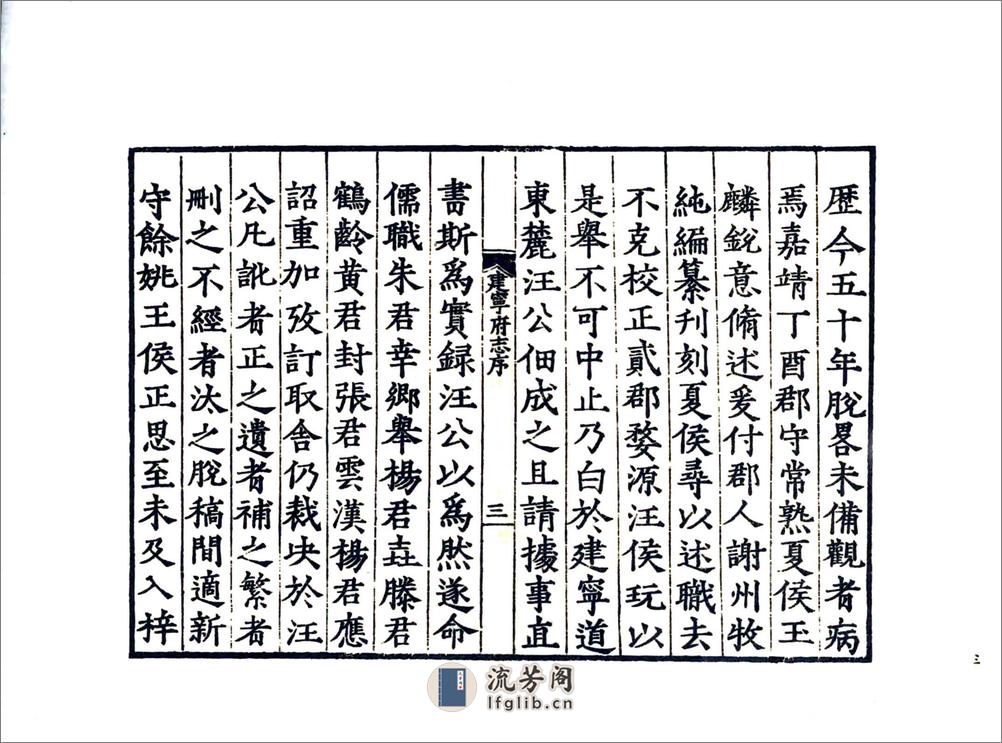 歴今五十年脫畧未備觀者病
焉嘉靖丁酉郡守常熟夏侯玉
麟銳意脩述爰付郡人謝州牧
純編纂刋刻夏侯尋以述職去
不克校正貳郡婺源汪侯玩以
是舉不可中止乃白於建寧道
東麓汪公佃成之且請據事直
建寧府志序
三
書斯爲實録汪公以爲然遂命
儒職朱君幸鄉舉楊君垚滕君
鶴齡黃君封張君雲漢楊君應
詔重加攷訂取舍仍裁决於汪
公凡訛者正之遺者補之繁者
刪之不經者汰之脫稿間適新
守餘姚王侯正思至未及入梓
三
流芳阁
lfglib.cn